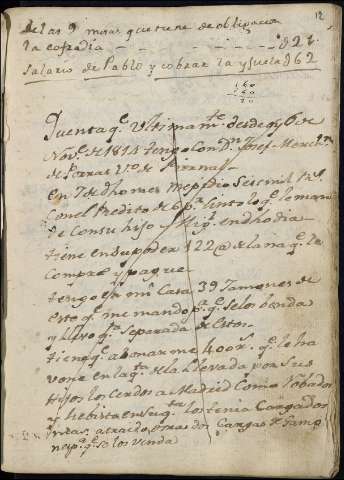 12
de las 9 misas que tiene de obligacion
la cofradia - - - - - d 27.
Salario de Pablo y cobrar la ysuela d 62
160
20
Quenta q.e ultimam.te desde oy 6 de
Nov.e de 1814 tengo con Dn Josef
de Porras V.o de
En 7 de dho mes me pidio seis mil rs
con el Redito de 6 p.r sinto lo q.e lo man
de con su hijo Mig.l en dho dia
tiene en su poder 122 @ de lana q.e le
compre y pague
tengo en mi Casa 39 Jamones de
este q.e me mando p.a q.e se los benda
y llevo q.ta separada de estos.
tieng q.e abonarme 400 rs. q.e le ha
vone en la q.ta de la llevada por sus
Hijos los cerdos a Madrid como lobados
y hebista en su q.ta los tenia Cargados
atraido otras dos Cargas de Jamo
nes p.a q.e se los venda